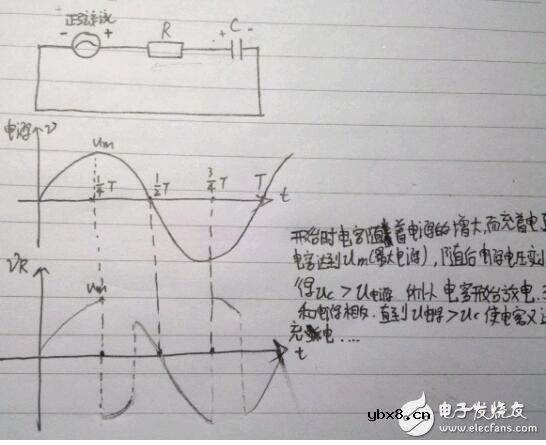 正弦波
- +
R
+ C -
电源 V
Um
1/4 T
1/2 T
3/4 T
T
t
开始时电容随着电源的增大,而充着电
电容达到Um(最大电源),随后电源电压变
得Uc > U电源 所以电容开始放电.
和电源相反.直到U电源 > Uc 使电容又
充电....
VR
Um
t
ybx8.cn
电子发烧友
www.elecfans.com